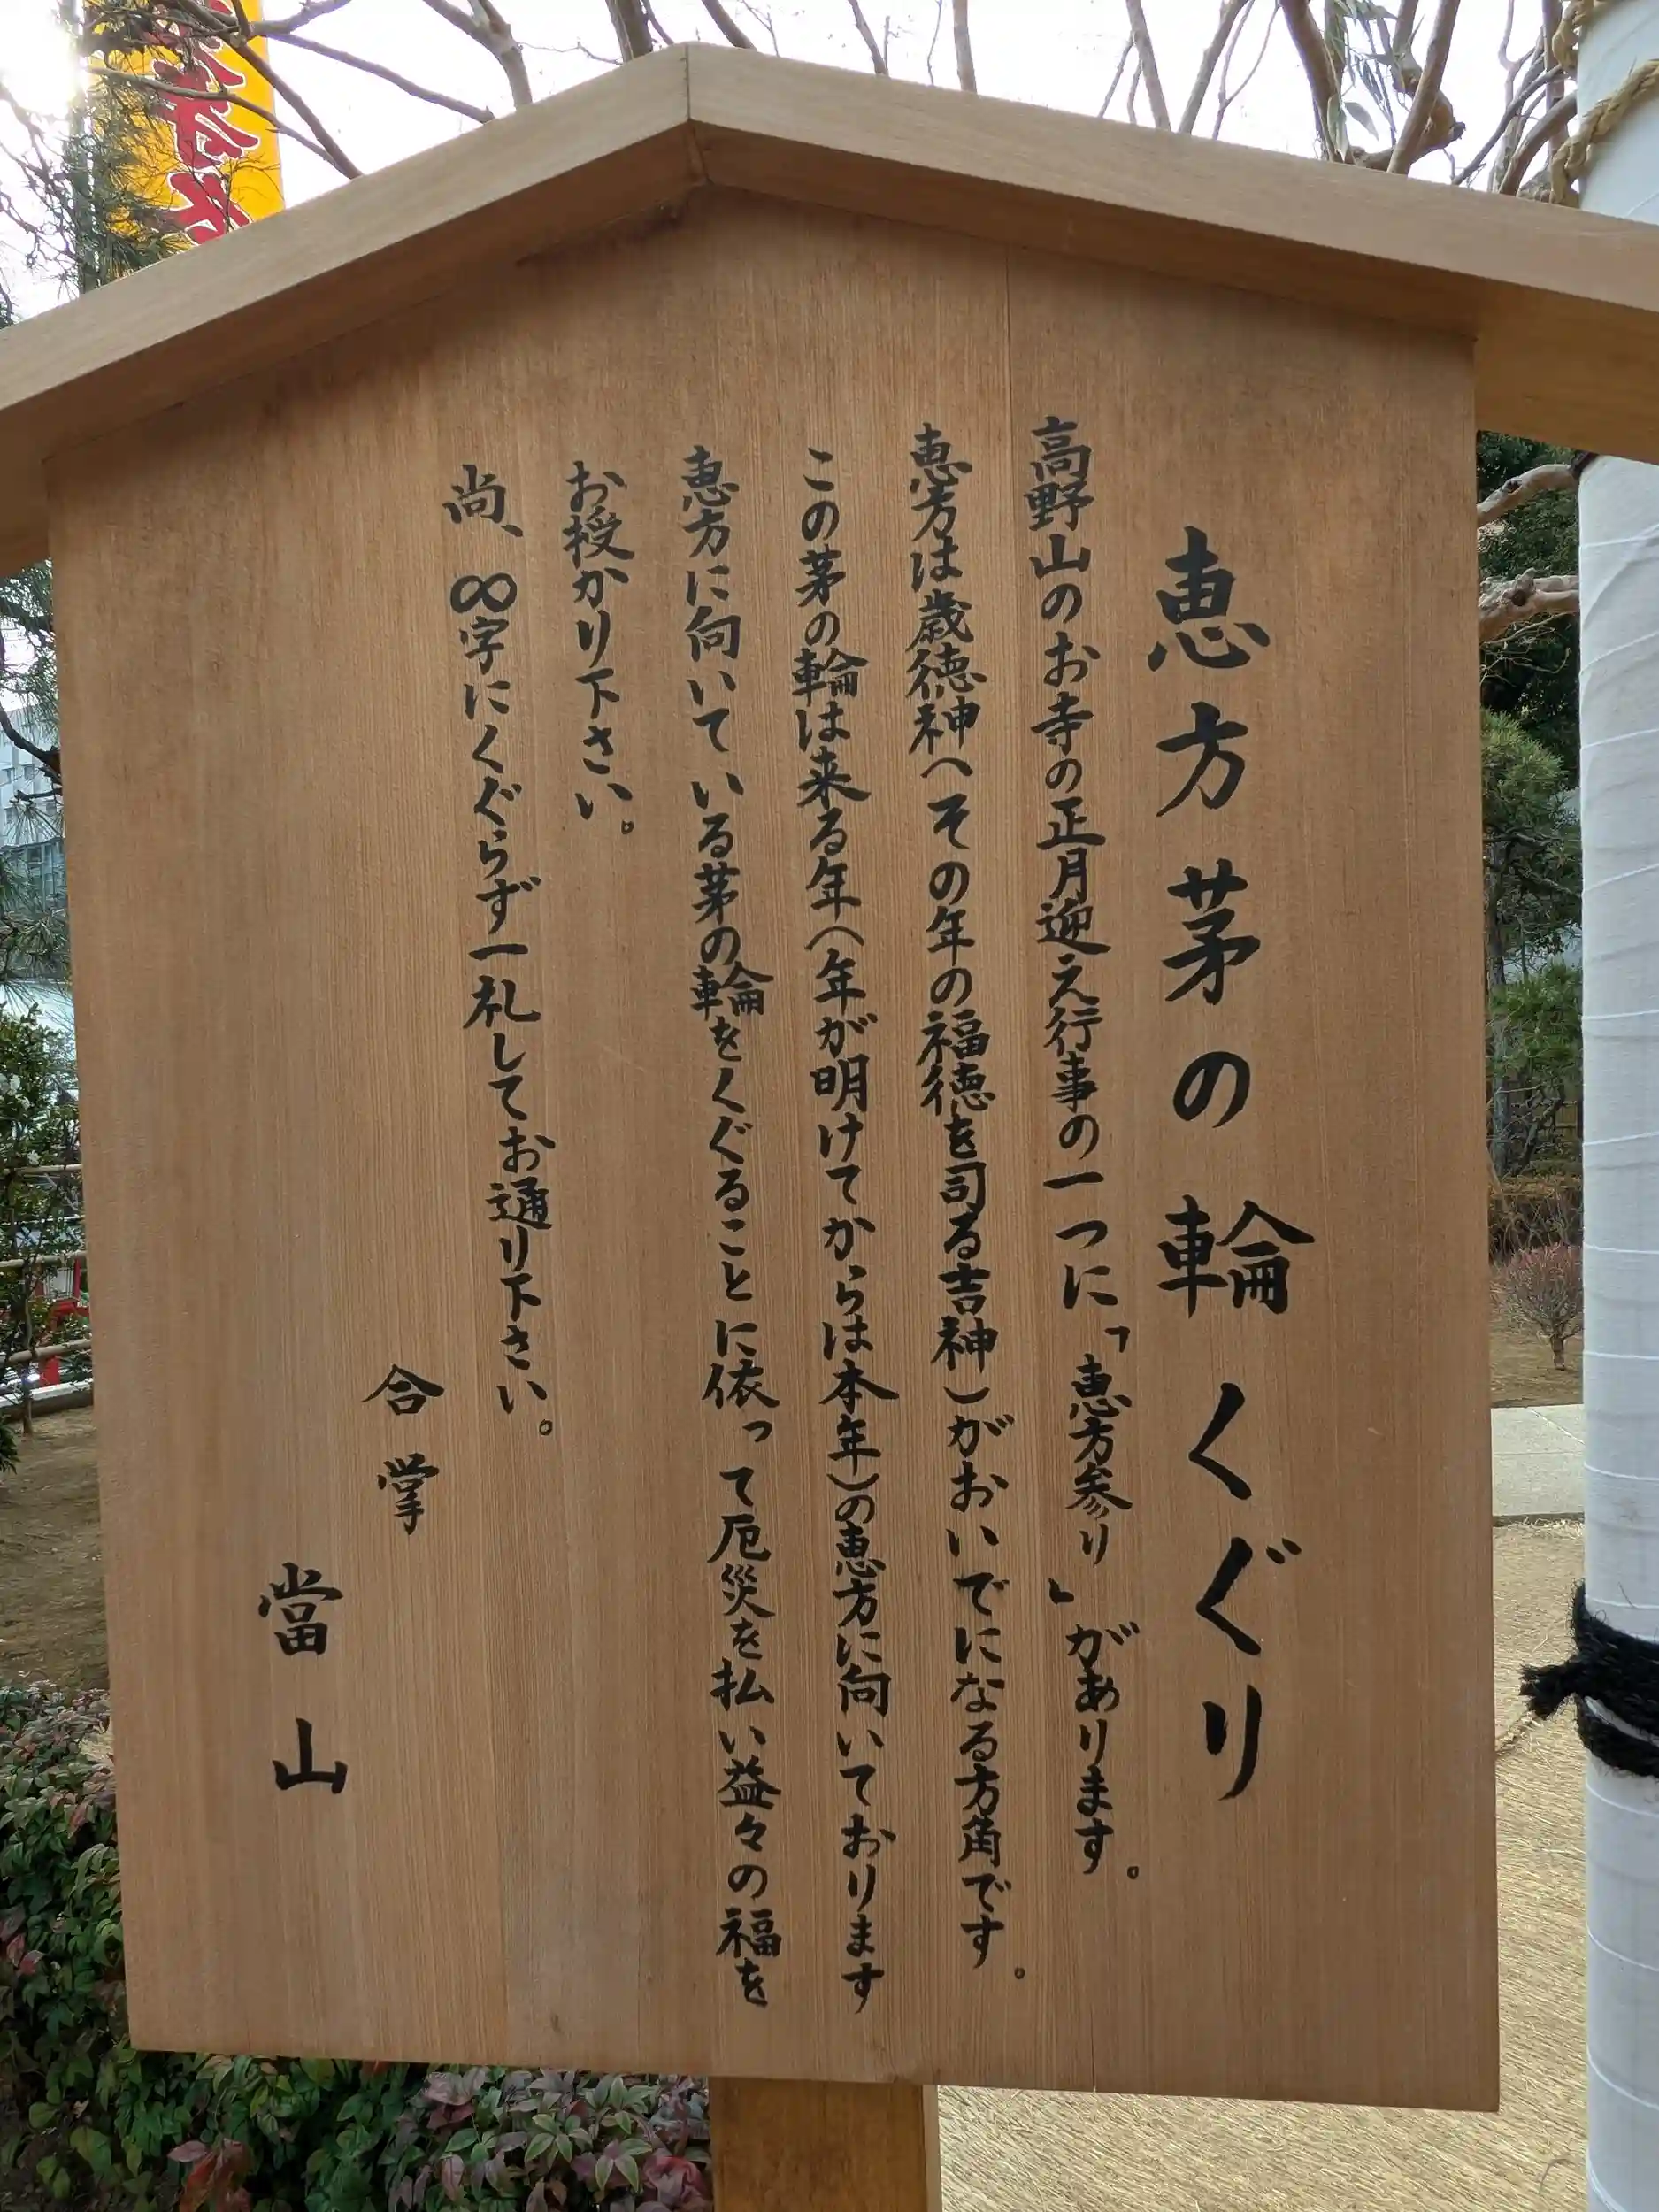 恵方茅の輪くぐり
高野山のお寺の正月迎え行事の一つに「恵方参り」があります。
恵方は歳徳神(その年の福徳を司る吉神)がおいでになる方角です。
この茅の輪は来る年(年が明けてからは本年)の恵方に向いております
恵方に向いている茅の輪をくぐることに依って厄災を払い益々の福を
お授かり下さい。
尚、∞字にくぐらず一礼してお通り下さい。
合掌
當山